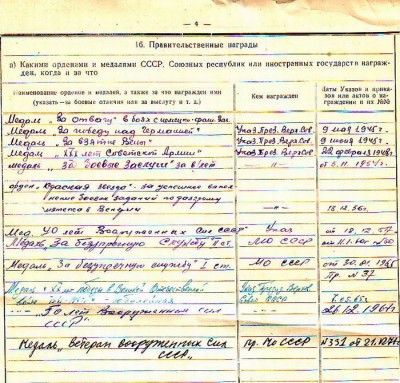 — 4 —
16. Правительственные награды
а) Какими орденами и медалями СССР, Союзных республик или иностранных государств награж-
ден, когда и за что
Наименование орденов и медалей, а также за что награжден ими
(указать — за боевые отличия или за выслугу и т. д.)
Кем награжден
Даты Указов и приказов или актов о награждении и их №№
Медаль „За отвагу" в боях с немецко-фаш. зах.
Медаль „За победу над Германией" Указ. През. Верх. Сов. 9 мая 1945 г.
Медаль „За взятие Вены" Указ. През. Верх. Сов. 9 июня 1945 г.
Медаль „XXX лет Советской Армии" Указ. През. Верх. Сов. 22 февраля 1948 г.
Медаль „За боевые Заслуги" за 〃 от 5.11.1954 г.
орден „Красная звезда" за успешное выпол-
нение боевых заданий по разгрому
мятежа в Венгрии —〃— 18.12.56 г.
Мед. 40 лет Вооруженных Сил СССР Указ от 18.12.57 г.
Медаль „За безупречную службу" II ст. МО СССР №30
Медаль „За безупречную службу" I ст. МО СССР от 30.01.1965
Пр. № 37
Медаль „XX лет победы в Великой Отечественной
войне юбилейная Указ Презид. Верхов. Совет СССР 7.05.65 г.
—〃— „50 лет Вооруженных сил
СССР" 26.12.1967 г.
Медаль „Ветеран вооруженных сил
СССР" Пр. МО СССР №332 от 21.12.